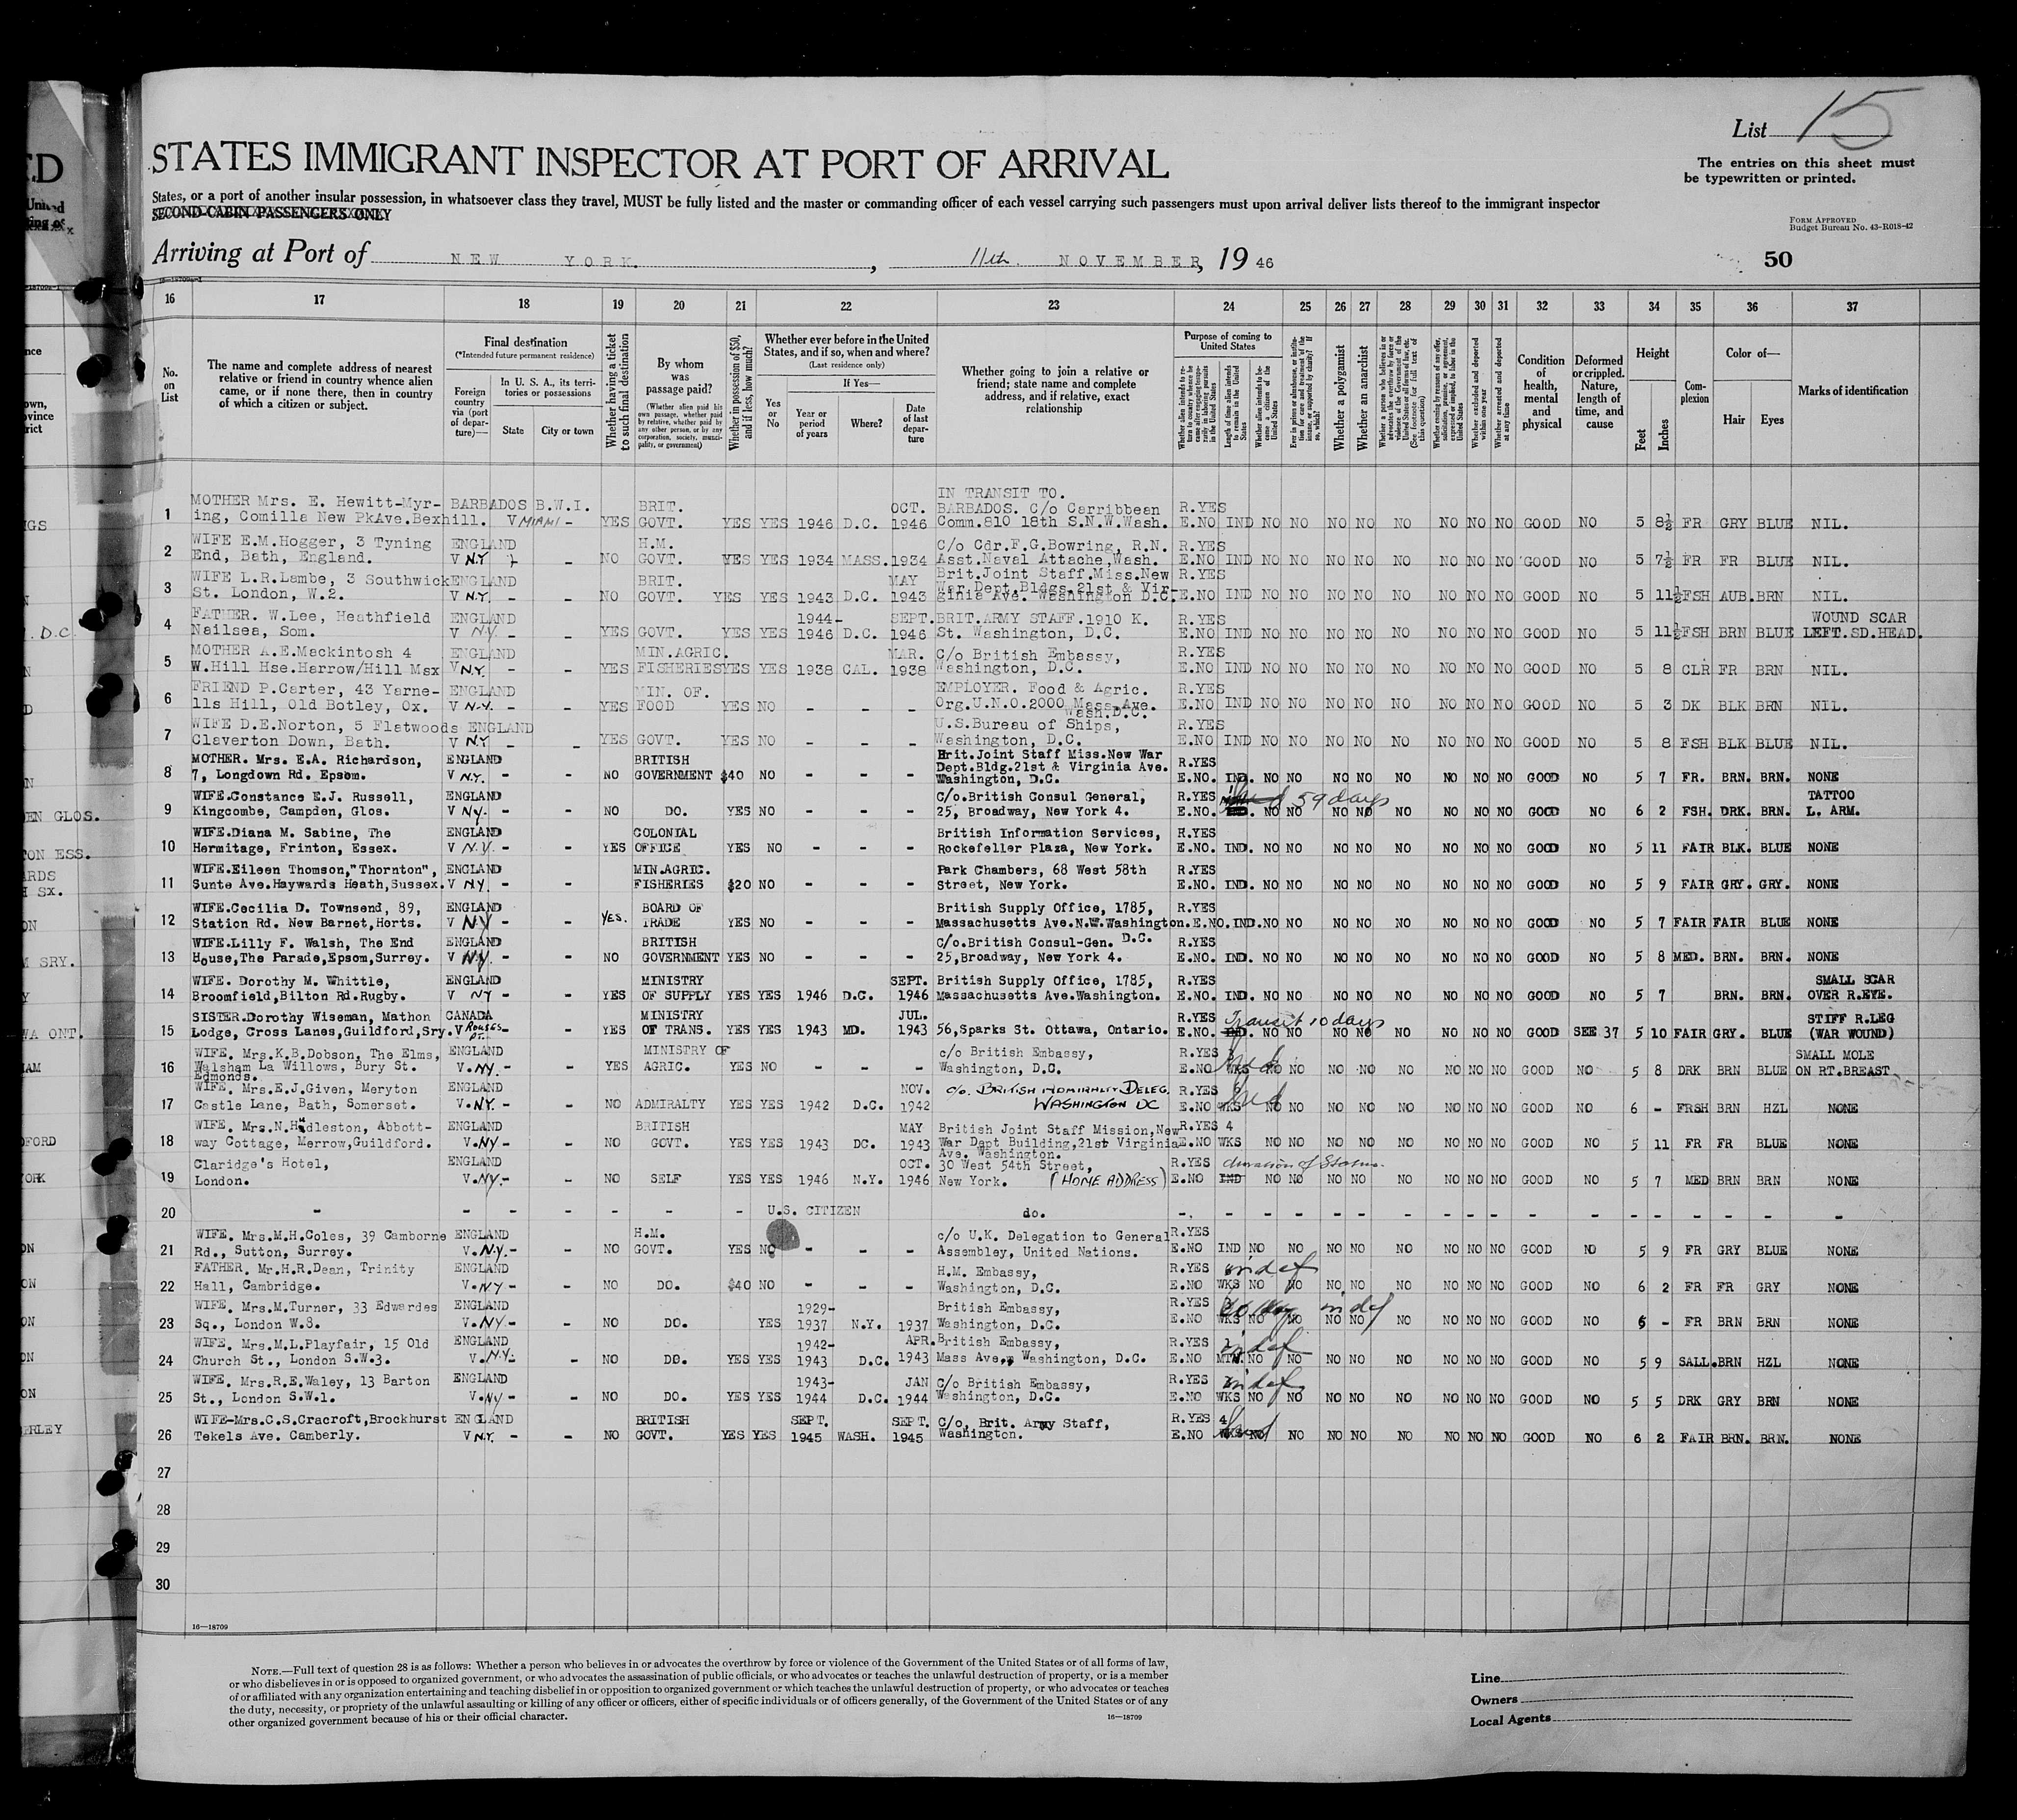 List 15
The entries on this sheet must
be typewritten or printed.
STATES IMMIGRANT INSPECTOR AT PORT OF ARRIVAL
States, or a port of another insular possession, in whatsoever class they travel, MUST be fully listed and the master or commanding officer of each vessel carrying such passengers must upon arrival deliver lists thereof to the immigrant inspector
SECOND-CABIN PASSENGERS ONLY
FORM APPROVED
Budget Bureau No. 43-R018-42
Arriving at Port of NEW YORK. , 11th. NOVEMBER, 19 46
50
16 17 18 19 20 21 22 23 24 25 26 27 28 29 30 31 32 33 34 35 36 37
No. on List
The name and complete address of nearest
relative or friend in country whence alien
came, or if none there, then in country
of which a citizen or subject.
Final destination
(*Intended future permanent residence)
Foreign country via (port of departure)—
In U. S. A., its territories or possessions
State
City or town
Whether having a ticket to such final destination
By whom was passage paid?
(Whether alien paid his own passage, whether paid by relative, whether paid by any other person, or by any corporation, society, municipality, or government)
Whether in possession of $50, and if less, how much?
Whether ever before in the United States, and if so, when and where?
(Last residence only)
Yes or No
If Yes—
Year or period of years
Where?
Date of last departure
Whether going to join a relative or
friend; state name and complete
address, and if relative, exact
relationship
Purpose of coming to United States
Length of time alien intends to remain in the United States
Whether alien intends to become a citizen of the United States
Whether a polygamist
Whether an anarchist
Whether excluded and deported within one year
Whether arrested and deported at any time
Condition of health, mental and physical
Deformed or crippled. Nature, length of time, and cause
Height
Feet
Inches
Complexion
Color of—
Hair
Eyes
Marks of identification
1 MOTHER Mrs. E. Hewitt-Myr- BARBADOS B.W.I. BRIT. OCT. IN TRANSIT TO. BARBADOS. C/o Carribbean R.YES
ing, Comilla New PkAve.Bexhill. V MIAMI - YES GOVT. YES YES 1946 D.C. 1946 Comm.810 18th S.N.W.Wash. E.NO IND NO NO NO NO NO NO NO NO GOOD NO 5 8½ FR GRY BLUE NIL.
2 WIFE E.M.Hogger, 3 Tyning ENGLAND H.M. C/o Cdr.F.G.Bowring, R.N. R.YES
End, Bath, England. V N.Y - NO GOVT. YES YES 1934 MASS. 1934 Asst.Naval Attache,Wash. E.NO IND NO NO NO NO NO NO NO NO GOOD NO 5 7½ FR FR BLUE NIL.
3 WIFE L.R.Lambe, 3 Southwick ENGLAND BRIT. MAY Brit.Joint Staff.Miss.New R.YES
St. London, W.2. V N.Y. - - NO GOVT. YES YES 1943 D.C. 1943 War Dept.Bldgs.21st & Vir-
ginia Ave. Washington D.C. E.NO IND NO NO NO NO NO NO NO NO GOOD NO 5 11½ FSH AUB. BRN NIL.
4 FATHER. W.Lee, Heathfield ENGLAND 1944- SEPT. BRIT.ARMY STAFF.1910 K. R.YES WOUND SCAR
Nailsea, Som. V N.Y. - - YES GOVT. YES YES 1946 D.C. 1946 St. Washington, D.C. E.NO IND NO NO NO NO NO NO NO NO GOOD NO 5 11½ FSH BRN BLUE LEFT.SD.HEAD.
5 MOTHER A.E.Mackintosh 4 ENGLAND MIN.AGRIC. MAR. C/o British Embassy, R.YES
W.Hill Hse.Harrow/Hill Msx V N.Y. - YES FISHERIES YES YES 1938 CAL. 1938 Washington, D.C. E.NO IND NO NO NO NO NO NO NO NO GOOD NO 5 8 CLR FR BRN NIL.
6 FRIEND P.Carter, 43 Yarne- ENGLAND MIN. OF. EMPLOYER. Food & Agric. R.YES
lls Hill, Old Botley, Ox. V N.Y. - - YES FOOD YES NO - - - Org.U.N.O.2000 Mass.Ave.
Wash.D.C. E.NO IND NO NO NO NO NO NO NO NO GOOD NO 5 3 DK BLK BRN NIL.
7 WIFE D.E.Norton, 5 Flatwoods ENGLAND U.S.Bureau of Ships, R.YES
Claverton Down, Bath. V N.Y - - YES GOVT. YES NO - - - Washington, D.C. E.NO IND NO NO NO NO NO NO NO NO GOOD NO 5 8 FSH BLK BLUE NIL.
8 MOTHER. Mrs. E.A. Richardson, ENGLAND BRITISH Brit.Joint Staff Miss.New War
Dept.Bldg.21st & Virginia Ave. R.YES
7, Longdown Rd. Epsom. V N.Y. - - NO GOVERNMENT $40 NO - - - Washington, D.C. E.NO. IND. NO NO NO NO NO NO NO NO GOOD NO 5 7 FR. BRN. BRN. NONE
9 WIFE.Constance E.J. Russell, ENGLAND C/o.British Consul General, R.YES 59 days TATTOO
Kingcombe, Campden, Glos. V N.Y. - - NO DO. YES NO - - - 25, Broadway, New York 4. E.NO. NO NO NO NO NO NO NO NO GOOD NO 6 2 FSH. DRK. BRN. L. ARM.
10 WIFE.Diana M. Sabine, The ENGLAND COLONIAL British Information Services, R.YES
Hermitage, Frinton, Essex. V N.Y. - - YES OFFICE YES NO - - - Rockefeller Plaza, New York. E.NO. IND. NO NO NO NO NO NO NO NO GOOD NO 5 11 FAIR BLK. BLUE NONE
11 WIFE.Eileen Thomson,"Thornton", ENGLAND MIN.AGRIC. Park Chambers, 68 West 58th R.YES
Sunte Ave.Haywards Heath,Sussex. V N.Y. - - FISHERIES $20 NO - - - Street, New York. E.NO. IND. NO NO NO NO NO NO NO NO GOOD NO 5 9 FAIR GRY. GRY. NONE
12 WIFE.Cecilia D. Townsend, 89, ENGLAND BOARD OF British Supply Office, 1785, R.YES
Station Rd. New Barnet,Horts. V N.Y - - YES. TRADE YES NO - - - Massachusetts Ave.N.W.Washington. E.NO. IND. NO NO NO NO NO NO NO NO GOOD NO 5 7 FAIR FAIR BLUE NONE
D.C.
13 WIFE.Lilly F. Walsh, The End ENGLAND BRITISH C/o.British Consul-Gen. R.YES
House,The Parade,Epsom,Surrey. V N.Y. - - NO GOVERNMENT YES NO - - - 25,Broadway, New York 4. E.NO. IND. NO NO NO NO NO NO NO NO GOOD NO 5 8 MED. BRN. BRN. NONE
14 WIFE. Dorothy M. Whittle, ENGLAND MINISTRY SEPT. British Supply Office, 1785, R.YES SMALL SCAR
Broomfield,Bilton Rd.Rugby. V NY - - YES OF SUPPLY YES YES 1946 D.C. 1946 Massachusetts Ave.Washington. E.NO. IND. NO NO NO NO NO NO NO NO GOOD NO 5 7 BRN. BRN. OVER R.EYE.
15 SISTER.Dorothy Wiseman, Mathon CANADA MINISTRY JUL. R.YES Transit 10 days STIFF R.LEG
Lodge, Cross Lanes,Guildford,Sry. V Rouses Pt. - - YES OF TRANS. YES YES 1943 MD. 1943 56,Sparks St. Ottawa, Ontario. E.NO. IND NO NO NO NO NO NO NO NO GOOD SEE 37 5 10 FAIR GRY. BLUE (WAR WOUND)
16 WIFE. Mrs.K.B.Dobson, The Elms, ENGLAND MINISTRY OF c/o British Embassy, R.YES 3 SMALL MOLE
Walsham La Willows, Bury St. V.NY. - - YES AGRIC. YES NO - - - Washington, D.C. E.NO WKS NO NO NO NO NO NO NO NO GOOD NO 5 8 DRK BRN BLUE ON RT.BREAST
Edmonds.
17 WIFE. Mrs.E.J.Given, Meryton ENGLAND NOV. c/o. BRITISH ADMIRALTY DELEG. R.YES 6 Ind
Castle Lane, Bath, Somerset. V.NY. - - NO ADMIRALTY YES YES 1942 D.C. 1942 WASHINGTON DC E.NO WKS NO NO NO NO NO NO NO NO GOOD NO 6 - FRSH BRN HZL NONE
18 WIFE. Mrs.N.Hudleston, Abbott- ENGLAND BRITISH MAY British Joint Staff Mission,New R.YES 4
way Cottage, Merrow,Guildford. V.NY - - NO GOVT. YES YES 1943 DC. 1943 War Dept Building,21st Virginia E.NO WKS NO NO NO NO NO NO NO NO GOOD NO 5 11 FR FR BLUE NONE
Ave. Washington.
19 Claridge's Hotel, ENGLAND OCT. 30 West 54th Street, R.YES duration of Status.
London. V.NY. - - NO SELF YES YES 1946 N.Y. 1946 New York. (HOME ADDRESS) E.NO IND NO NO NO NO NO NO NO NO GOOD NO 5 7 MED BRN BRN NONE
20 - - - - - - - U.S. CITIZEN do. - - - - - - - - - - - - - - - - - -
21 WIFE. Mrs.M.H.Coles, 39 Camborne ENGLAND H.M. c/o U.K. Delegation to General R.YES
Rd., Sutton, Surrey. V.N.Y. - - NO GOVT. YES NO - - - Assembley, United Nations. E.NO IND NO NO NO NO NO NO NO NO GOOD NO 5 9 FR GRY BLUE NONE
22 FATHER. Mr.H.R.Dean, Trinity ENGLAND H.M. Embassy, R.YES indef
Hall, Cambridge. V.NY - - NO DO. $40 NO - - - Washington, D.C. E.NO WKS NO NO NO NO NO NO NO NO GOOD NO 6 2 FR FR GRY NONE
23 WIFE. Mrs.M.Turner, 33 Edwardes ENGLAND 1929- British Embassy, R.YES indef
Sq., London W.8. V.NY. - - NO DO. YES 1937 N.Y. 1937 Washington, D.C. E.NO WKS NO NO NO NO NO NO NO NO GOOD NO 6 - FR BRN BRN NONE
24 WIFE. Mrs.M.L.Playfair, 15 Old ENGLAND 1942- APR. British Embassy, R.YES 1 indef
Church St., London S.W.3. V.N.Y. - NO DO. YES YES 1943 D.C. 1943 Mass Ave., Washington, D.C. E.NO MTH. NO NO NO NO NO NO NO NO GOOD NO 5 9 SALL. BRN HZL NONE
25 WIFE. Mrs.R.E.Waley, 13 Barton ENGLAND 1943- JAN C/o British Embassy, R.YES indef
St., London S.W.1. V.NY - - NO DO. YES YES 1944 D.C. 1944 Washington, D.C. E.NO WKS NO NO NO NO NO NO NO NO GOOD NO 5 5 DRK GRY BRN NONE
26 WIFE-Mrs.C.S.Cracroft,Brockhurst ENGLAND BRITISH SEPT. SEPT. C/o, Brit. Army Staff, R.YES 4
Tekels Ave. Camberly. V N.Y. - - NO GOVT. YES YES 1945 WASH. 1945 Washington. E.NO WKS NO NO NO NO NO NO NO NO GOOD NO 6 2 FAIR BRN. BRN. NONE
27
28
29
30
16—18709
NOTE.—Full text of question 28 is as follows: Whether a person who believes in or advocates the overthrow by force or violence of the Government of the United States or of all forms of law,
or who disbelieves in or is opposed to organized government, or who advocates the assassination of public officials, or who advocates or teaches the unlawful destruction of property, or is a member
of or affiliated with any organization entertaining and teaching disbelief in or opposition to organized government or which teaches the unlawful destruction of property, or who advocates or teaches
the duty, necessity, or propriety of the unlawful assaulting or killing of any officer or officers, either of specific individuals or of officers generally, of the Government of the United States or of any
other organized government because of his or their official character.
16—18709
Line
Owners
Local Agents